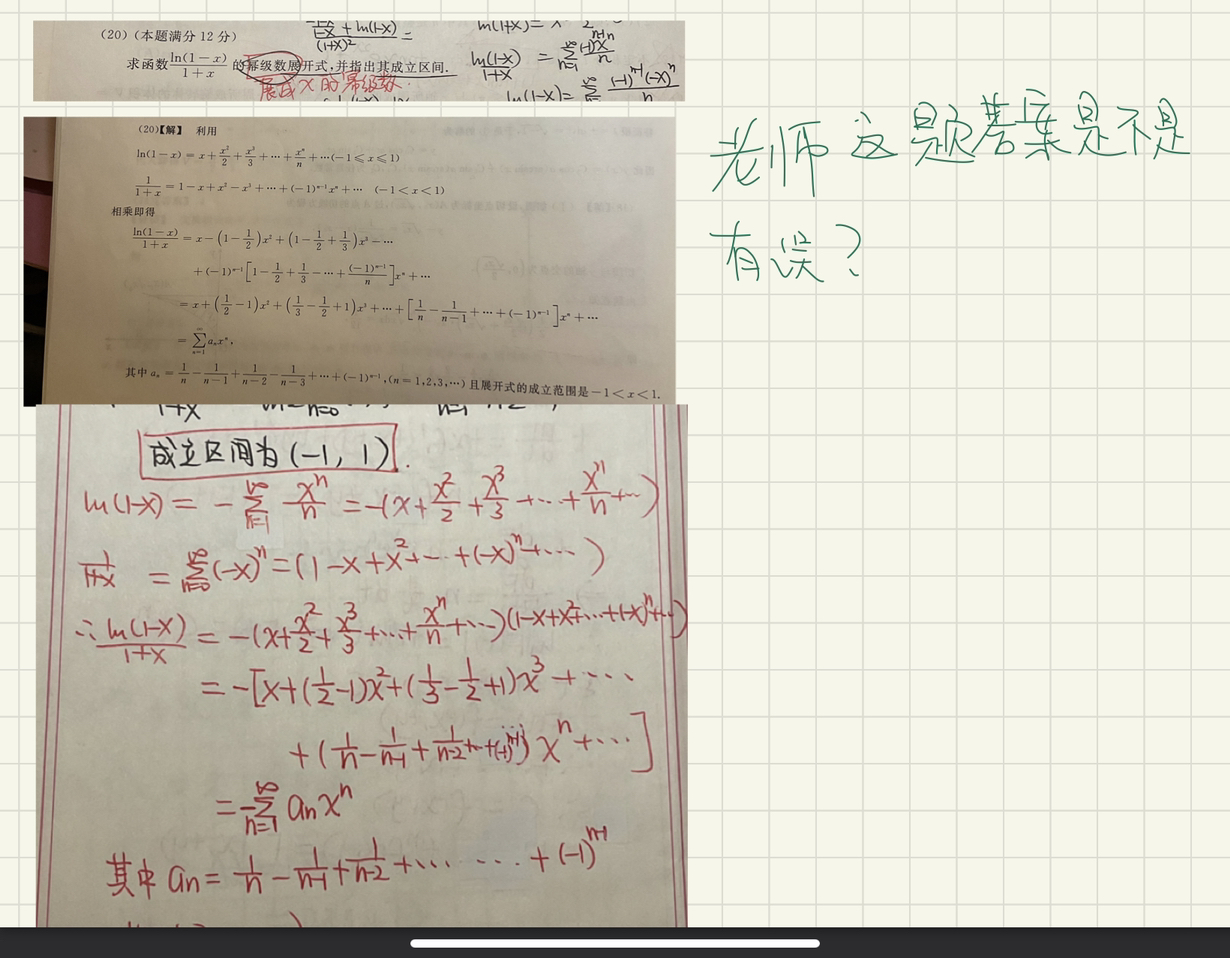 (20)(本题满分 12 分)
求函数 ln(1-x)/(1+x) 的幂级数展开式,并指出其成立区间.
展成 x 的幂级数
ln(1-x)/(1+x)
(20)【解】 利用
ln(1-x) = x + x²/2 + x³/3 + ⋯ + xⁿ/n + ⋯(-1 ≤ x ≤ 1)
1/(1+x) = 1 - x + x² - x³ + ⋯ + (-1)ⁿ⁻¹xⁿ + ⋯ (-1 < x < 1)
相乘即得
ln(1-x)/(1+x) = x - (1 - 1/2)x² + (1 - 1/2 + 1/3)x³ - ⋯
+ (-1)ⁿ⁻¹[1 - 1/2 + 1/3 - ⋯ + (-1)ⁿ⁻¹/n]xⁿ + ⋯
= x + (1/2 - 1)x² + (1/3 - 1/2 + 1)x³ + ⋯ + [1/n - 1/(n-1) + ⋯ + (-1)ⁿ⁻¹]xⁿ + ⋯
= ∑(n=1→∞) aₙxⁿ,
其中 aₙ = 1/n - 1/(n-1) + 1/(n-2) - 1/(n-3) + ⋯ + (-1)ⁿ⁻¹,(n = 1,2,3,⋯) 且展开式的成立范围是 -1 < x < 1.
成立区间为 (-1, 1).
ln(1-x) = -∑(n=1→∞) xⁿ/n = -(x + x²/2 + x³/3 + ⋯ + xⁿ/n + ⋯)
1/(1+x) = ∑(n=0→∞) (-x)ⁿ = (1 - x + x² + ⋯ + (-x)ⁿ + ⋯)
∴ ln(1-x)/(1+x) = -(x + x²/2 + x³/3 + ⋯ + xⁿ/n + ⋯)(1 - x + x² + ⋯ + (-x)ⁿ + ⋯)
= -[x + (1/2 - 1)x² + (1/3 - 1/2 + 1)x³ + ⋯
+ (1/n - 1/(n-1) + 1/(n-2) + ⋯ + (-1)ⁿ⁻¹) xⁿ + ⋯]
= -∑(n=1→∞) aₙxⁿ
其中 aₙ = 1/n - 1/(n-1) + 1/(n-2) + ⋯ ⋯ + (-1)ⁿ⁻¹
老师 这题答案是不是
有误?